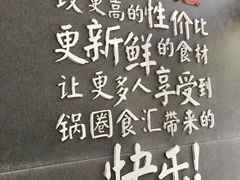 更高的性价比
更新鲜的食材
让更多人享受到
锅圈食汇带来的
快乐!